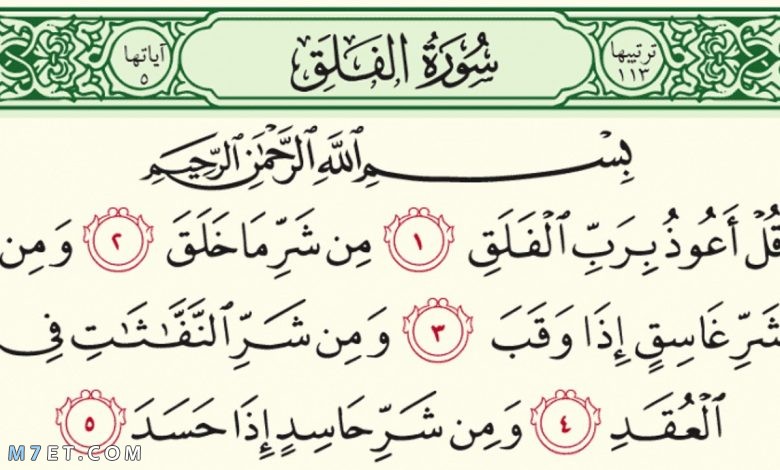 ترتيبها ١١٣
سُورَةُ الفَلَقِ
آياتها ٥
بِسْمِ ٱللَّهِ ٱلرَّحْمَٰنِ ٱلرَّحِيمِ
قُلْ أَعُوذُ بِرَبِّ ٱلْفَلَقِ ١ مِن شَرِّ مَا خَلَقَ ٢ وَمِن
شَرِّ غَاسِقٍ إِذَا وَقَبَ ٣ وَمِن شَرِّ ٱلنَّفَّٰثَٰتِ فِي
ٱلْعُقَدِ ٤ وَمِن شَرِّ حَاسِدٍ إِذَا حَسَدَ ٥
M7ET.COM